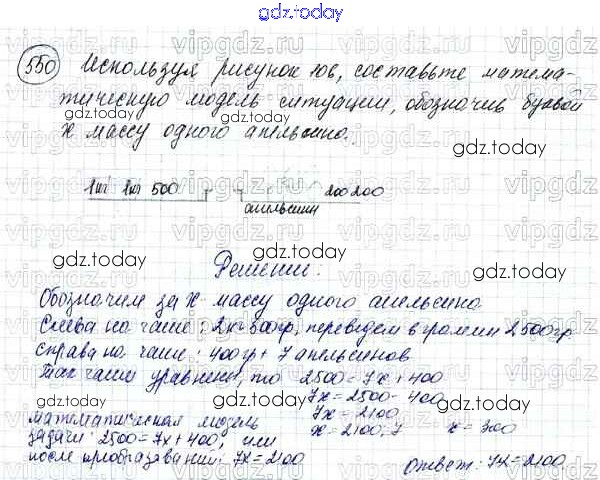 gdz.today
550 Используя рисунок 10в, составьте матема-
тическую модель ситуации, обозначив буквой
х массу одного апельсина.
gdz.today
gdz.today
1кг 1кг 500 200 200
апельсины
gdz.today
gdz.today
Решение:
Обозначим за х массу одного апельсина
gdz.today
Слева на чаше: 2кг 500гр, переведем в граммы 2500гр
справа на чаше: 400гр + 7 апельсинов
gdz.today
Так чаши уравнены, то 2500=7х+400
7х=2500-400
математическая модель 7х=2100
задачи: 2500=7х+400, или х=2100:7 х=300
после преобразований: 7х=2100
gdz.today
ответ: 7х=2100